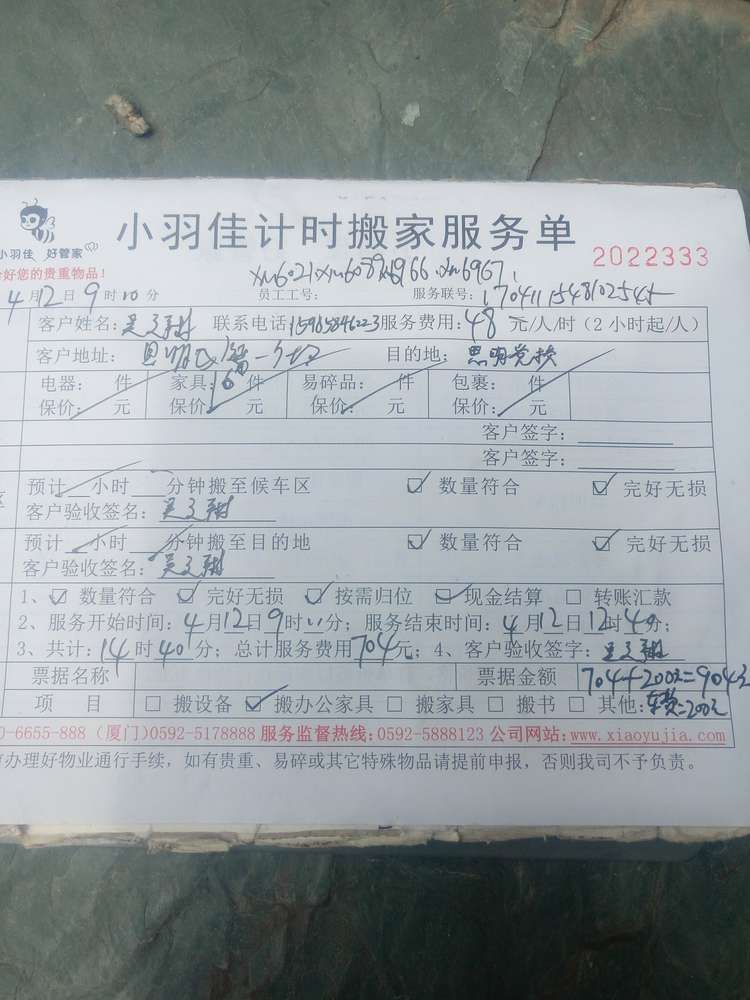 小羽佳计时搬家服务单
小羽佳 好管家
2022333
好您的贵重物品!
4月12日9时00分 员工工号: xm6021 xm6089 xm6967 服务联号: 170411154810254
客户姓名: 联系电话 服务费用:48元/人/时(2小时起/人)
客户地址: 目的地:思明党校
电器: 件 家具:16件 易碎品: 件 包裹: 件
保价: 元 保价: 元 保价: 元 保价: 元
客户签字:
客户签字:
预计 小时 分钟搬至候车区 ☑ 数量符合 ☑ 完好无损
客户验收签名:
预计 小时 分钟搬至目的地 ☑ 数量符合 ☑ 完好无损
客户验收签名:
1、☑ 数量符合 ☑ 完好无损 ☑ 按需归位 ☑ 现金结算 □ 转账汇款
2、服务开始时间:4月12日9时00分;服务结束时间:4月12日12时40分;
3、共计:14时40分;总计服务费用704元;4、客户验收签字:
票据名称 票据金额 704+200元=904元
项 目 □ 搬设备 ☑ 搬办公家具 □ 搬家具 □ 搬书 □ 其他:车费=200元
0-6655-888 (厦门)0592-5178888 服务监督热线:0592-5888123 公司网站:www.xiaoyujia.com
办理好物业通行手续,如有贵重、易碎或其它特殊物品请提前申报,否则我司不予负责。